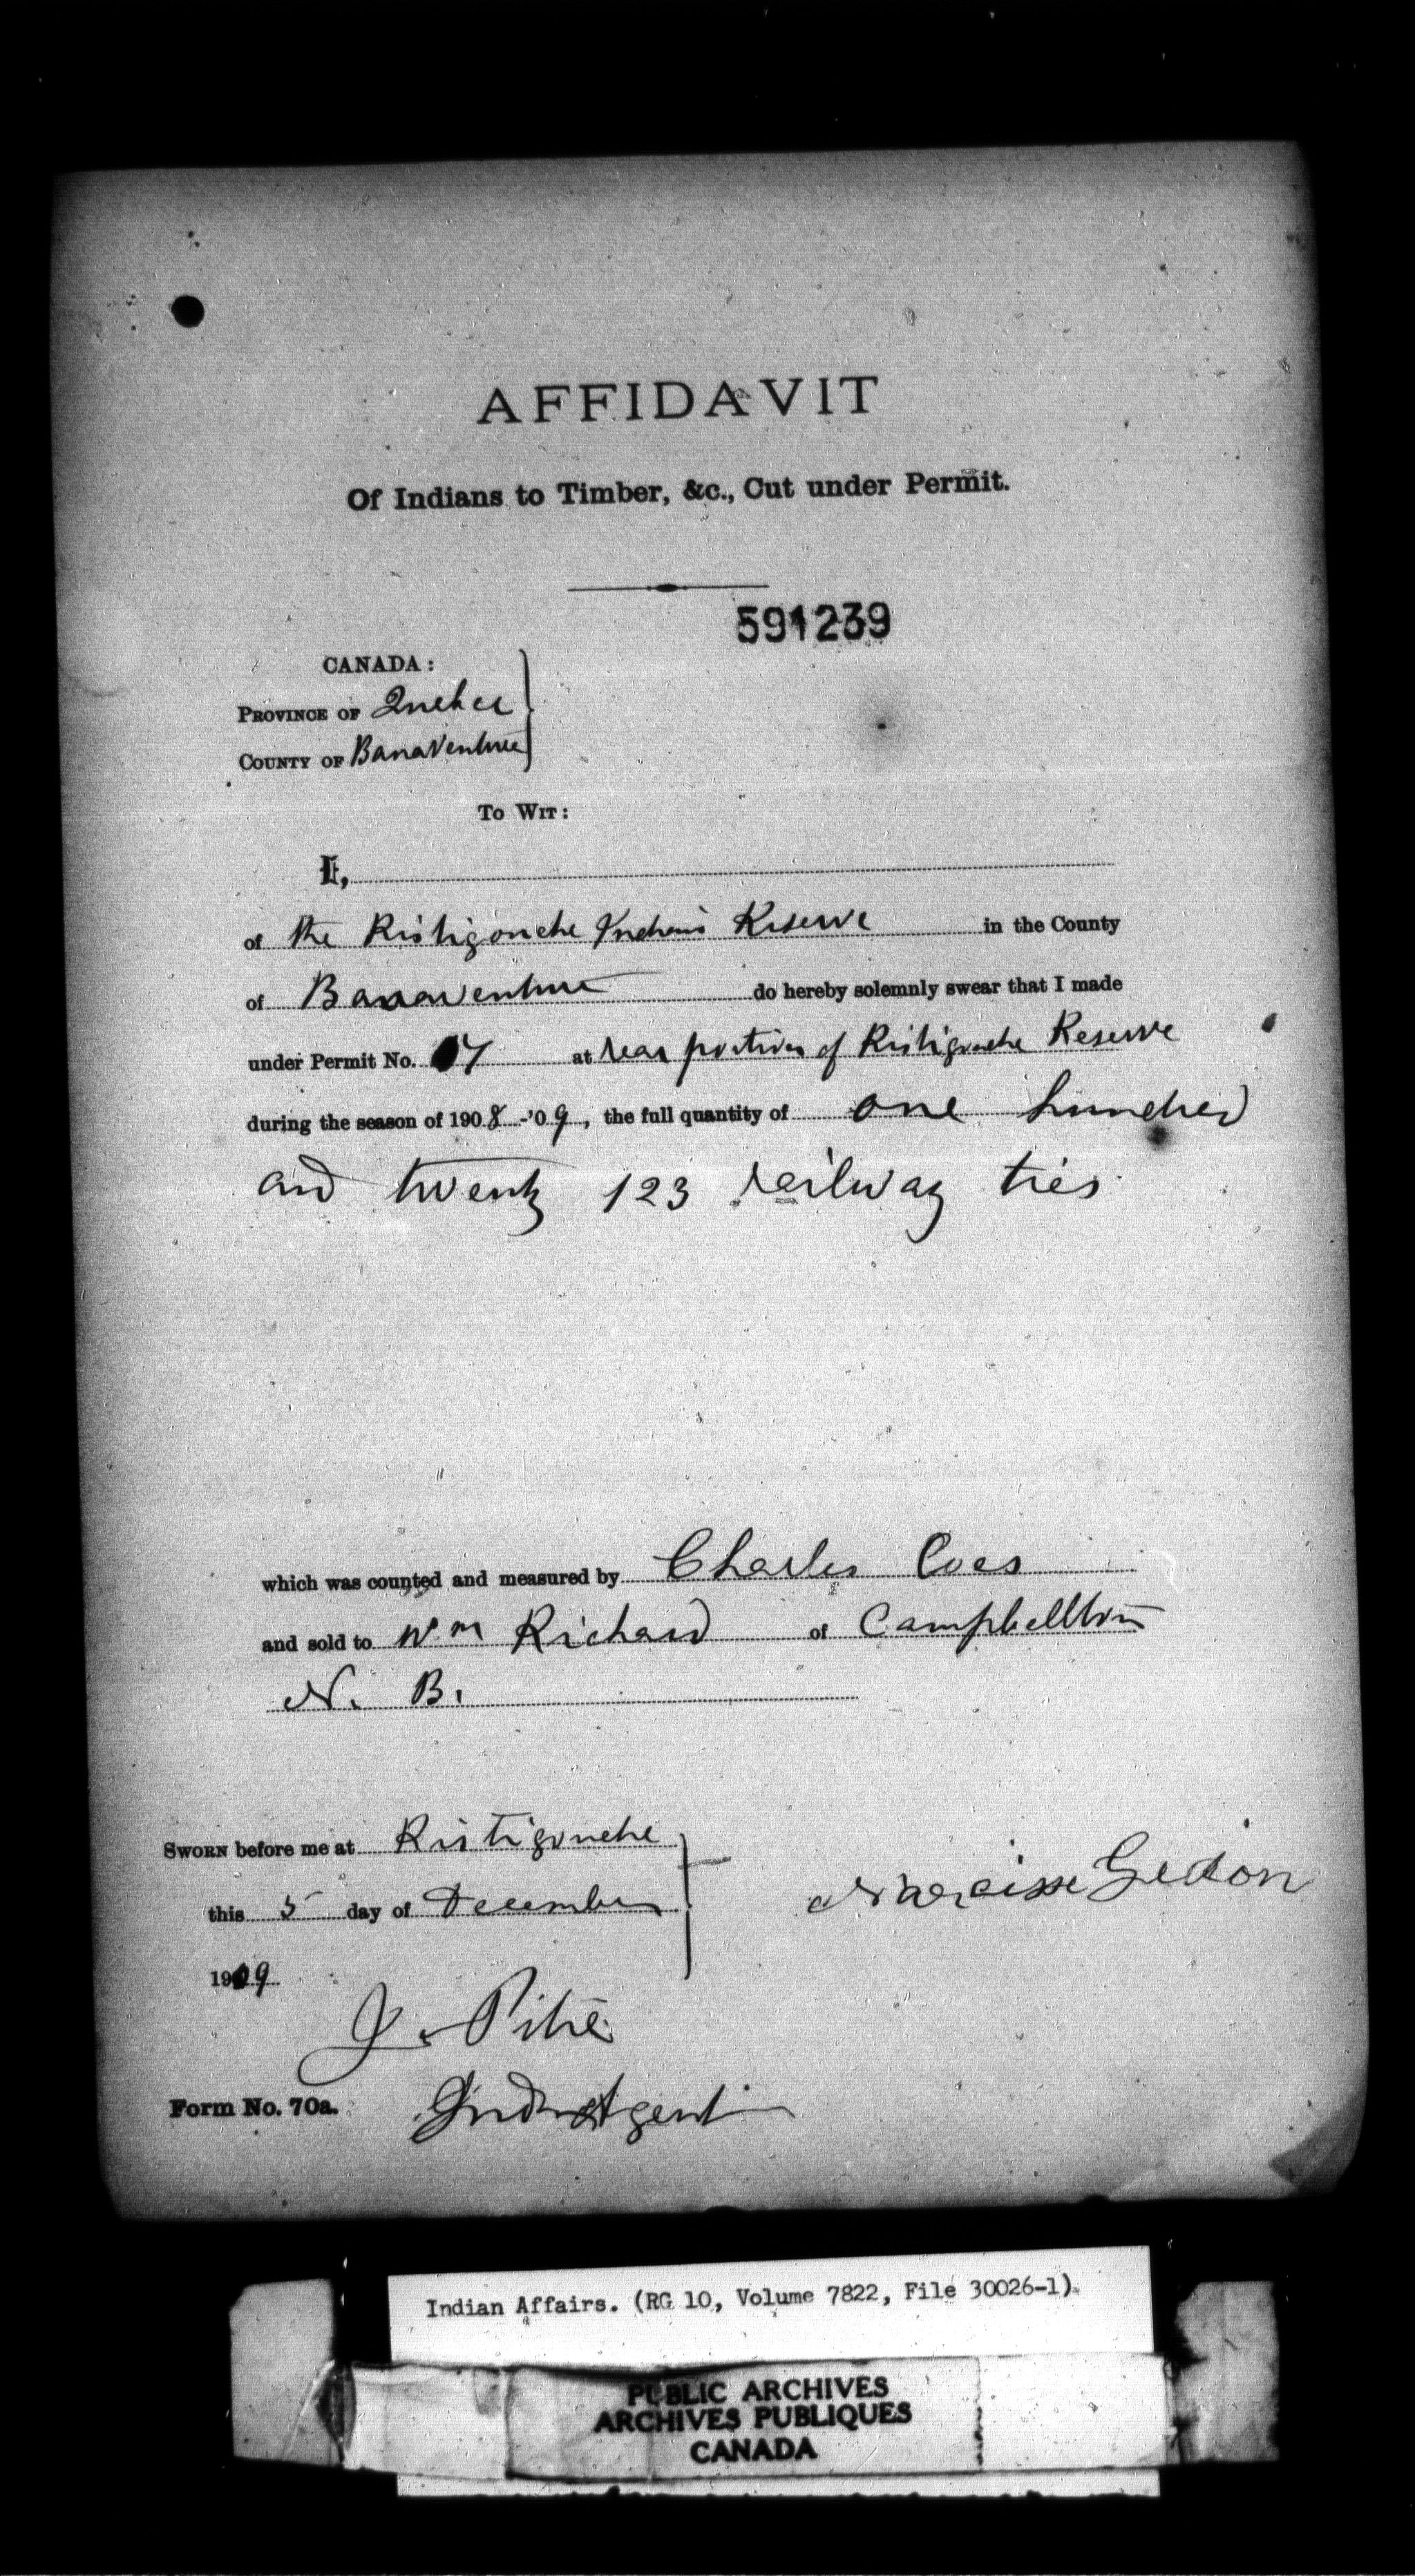 AFFIDAVIT
Of Indians to Timber, &c., Cut under Permit.
591239
CANADA:
PROVINCE OF Quebec
COUNTY OF Banaventure
TO WIT:
I,
of the Ristigouche Indians Reserve in the County
of Banaventure do hereby solemnly swear that I made
under Permit No. 7 at rear portion of Ristigouche Reserve
during the season of 1908-'09, the full quantity of one hundred
and twenty 123 railway ties
which was counted and measured by Charles
and sold to Wm Richard of Campbellton
N. B.
SWORN before me at Ristigouche
this 5 day of December
1909
Narcisse Gedion
J. Pitre
Ind Agent
Form No. 70a.
Indian Affairs. (RG 10, Volume 7822, File 30026-1).
PUBLIC ARCHIVES
ARCHIVES PUBLIQUES
CANADA